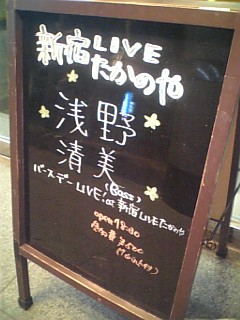 新宿LIVE
たかのや
浅野
清美
(Bass)
バースデーLIVE! at 新宿LIVEたかのや
open 18:30